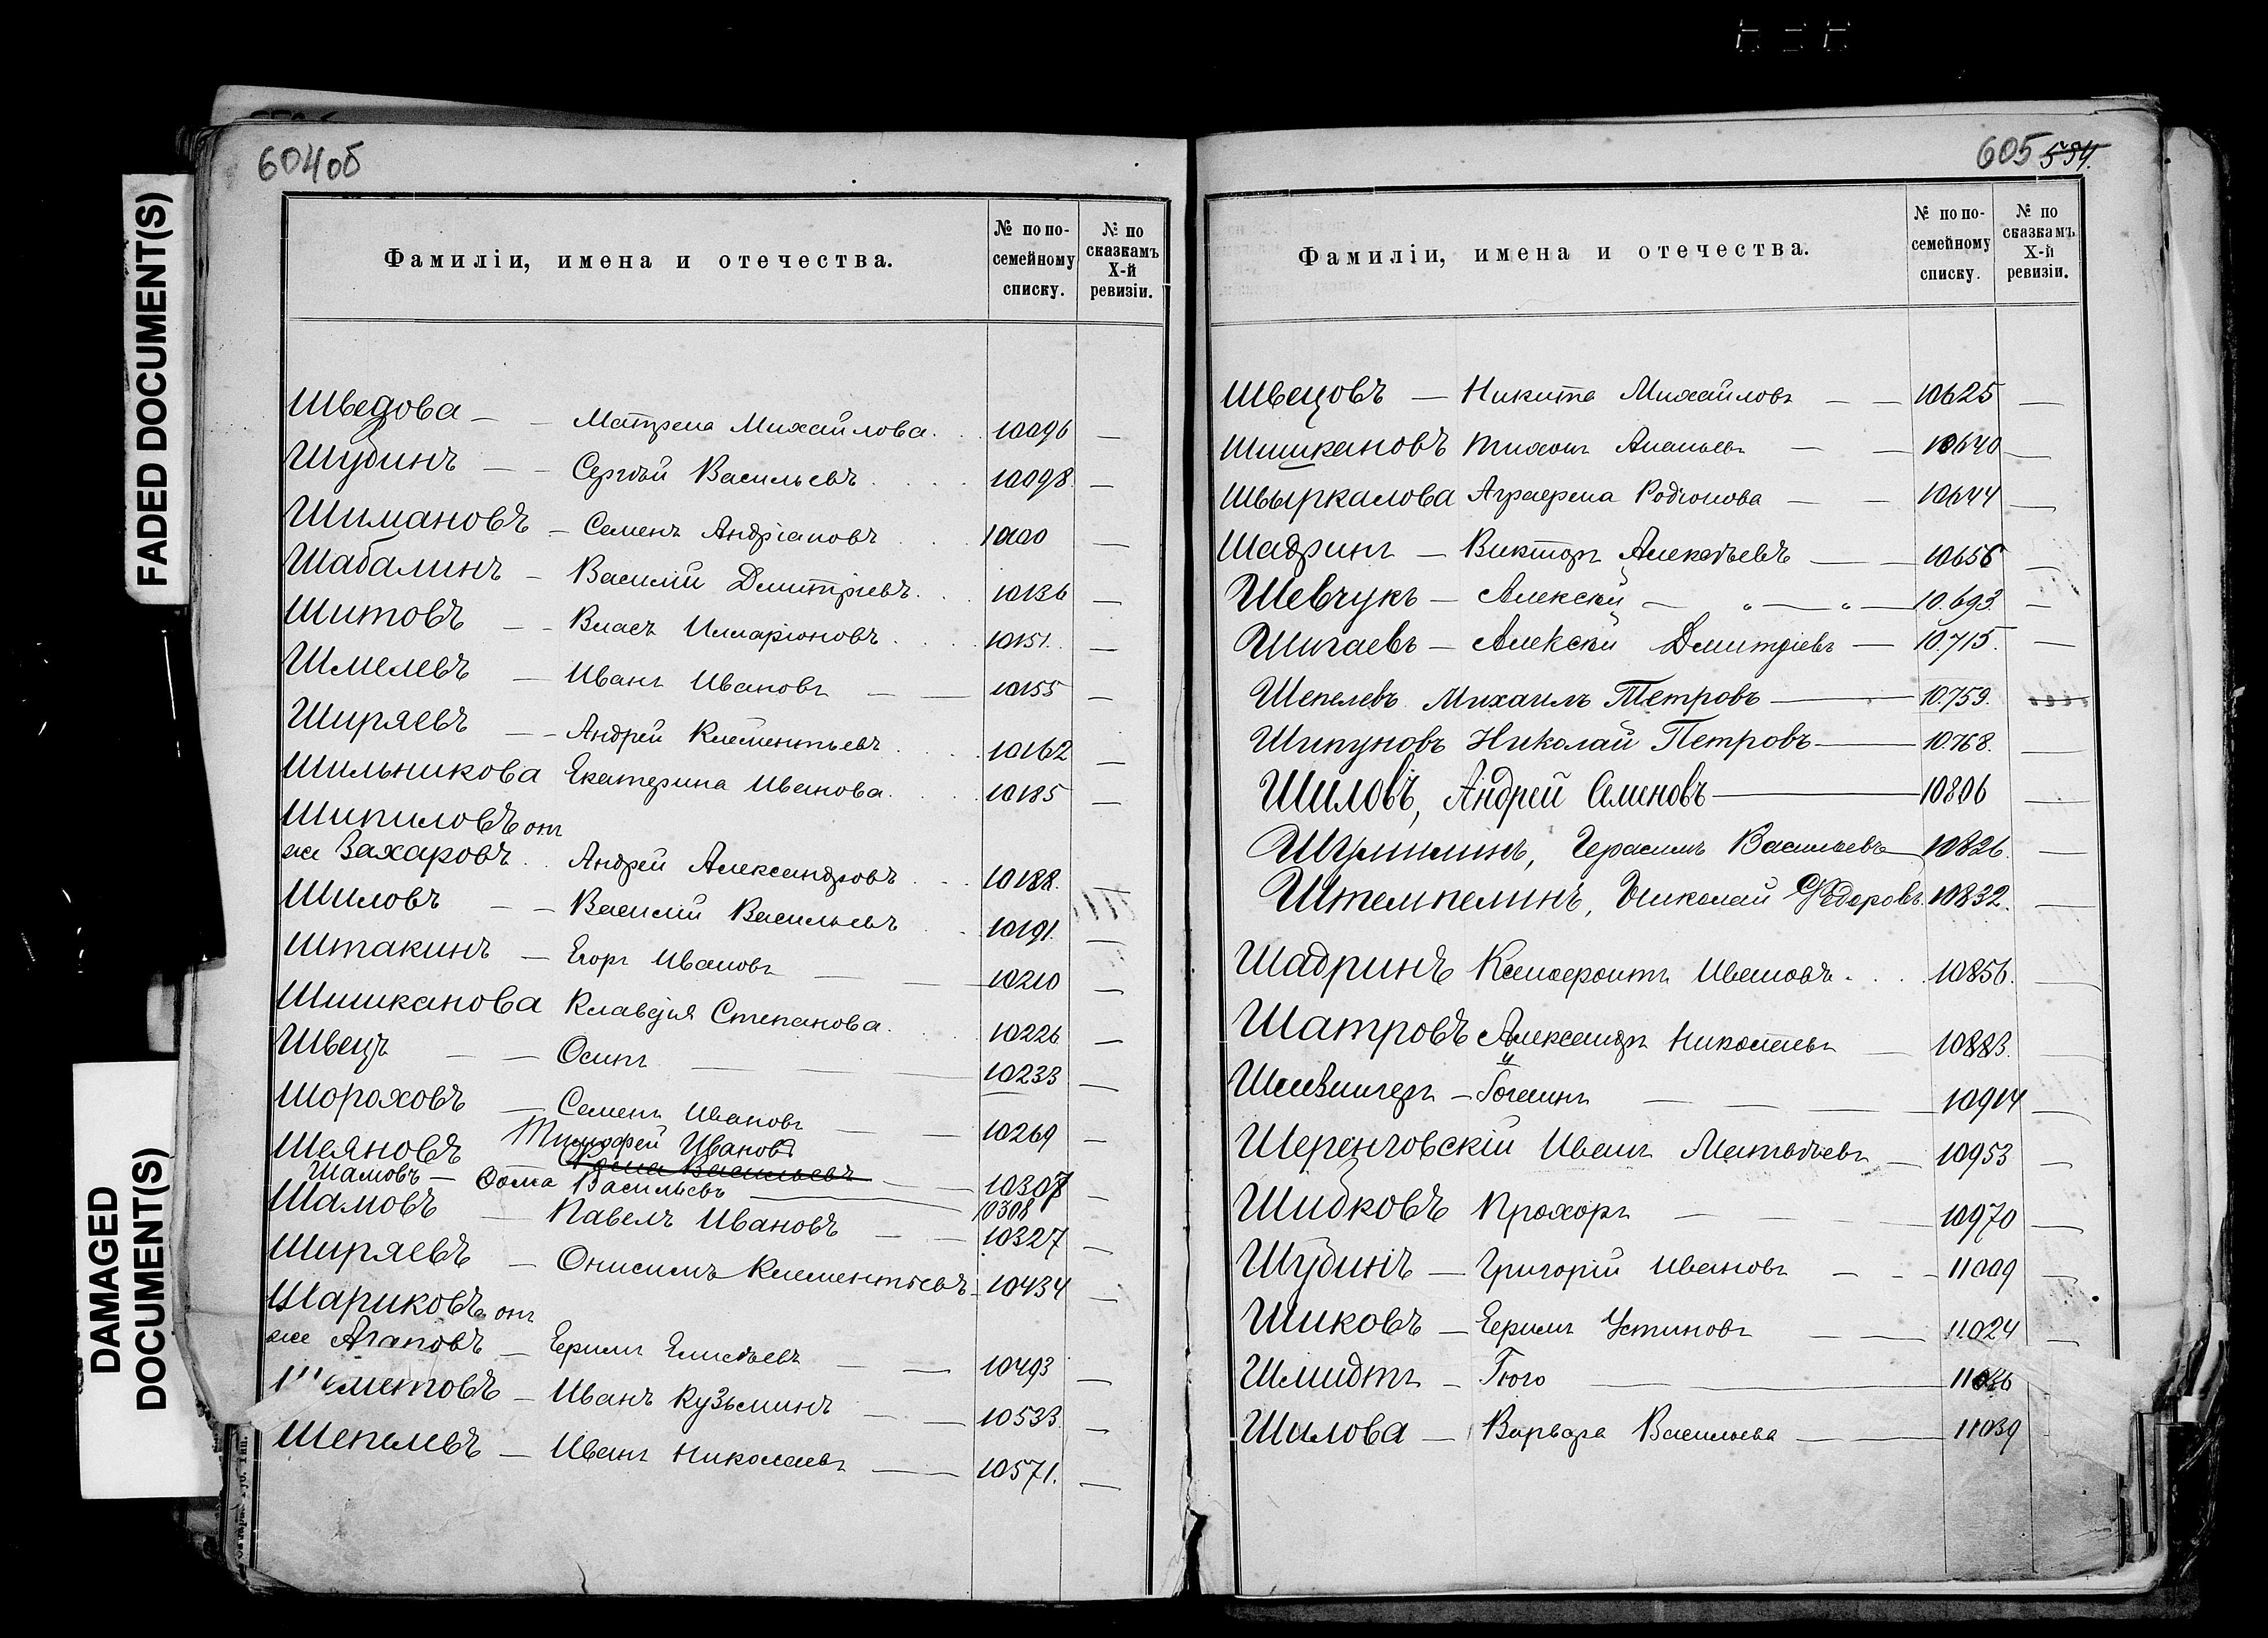 FADED DOCUMENT(S)
DAMAGED
DOCUMENT(S)
604об
Фамиліи, имена и отечества.
№ по по-
семейному
списку.
№ по
сказкамъ
X-й
ревизіи.
Шведова — — Матрена Михайлова. . . 10096 —
Шубинъ — — Сергѣй Васильевъ . . . . 10098. —
Шимановъ — Семенъ Андріановъ . . . 10100 —
Шабалинъ — Василій Дмитріевъ. . . 10136 —
Шитовъ — — Власъ Илларіоновъ . . . 10151. —
Шмелевъ — Иванъ Ивановъ — — 10155 —
Ширяевъ — — Андрей Клементьевъ . . . 10162 —
Шильникова Екатерина Иванова. . . . 10185 —
Шипиловъ онъ
же Захаровъ . . Андрей Александровъ . . . 10188. —
Шиловъ — — Василій Васильевъ . . 10191. —
Штакинъ — Егоръ Ивановъ — — 10210 —
Шишканова Клавдія Степанова. . . 10226 —
Швецъ — — Осипъ — — 10233 —
Шороховъ — Семенъ Ивановъ — — 10269 —
Шеяновъ Тимофей Ивановъ
Ѳома Васильевъ — — 10307 —
Шамовъ — Ѳома Васильевъ — 10308
Шамовъ — Павелъ Ивановъ — — 10327 —
Ширяевъ — Онисимъ Клементьевъ — 10434 —
Шариковъ онъ
же Агаповъ — Ефимъ Елисѣевъ — — 10493 —
Шеметовъ — Иванъ Кузьминъ — — 10533. —
Шепелевъ — Иванъ Николаевъ — 10571. —
605 554.
Фамиліи, имена и отечества.
№ по по-
семейному
списку.
№ по
сказкамъ
X-й
ревизіи.
Швецовъ — Никита Михайловъ — — 10625 —
Шишкановъ Тихонъ Ананьевъ — — 10640 —
Швыркалова Аграфена Родіонова — — 10644 —
Шадринъ — Викторъ Алексѣевъ — — 10656 —
Шевчукъ — Алексѣй — " — " — 10.693. —
Шигаевъ — Алексѣй Дмитріевъ — 10.715. —
Шепелевъ Михаилъ Петровъ — 10.759. —
Шипуновъ Николай Петровъ — 10.768. —
Шиловъ, Андрей Семеновъ — 10806 —
Шумилинъ, Герасимъ Васильевъ — 10826. —
Штемпелинъ, Николай Ѳедоровъ. 10832. —
Шадринъ Ксенофонтъ Ивановъ. . . . 10856. —
Шатровъ Александръ Николаевъ — 10883. —
— — — — 10914 —
Шеренговскій Иванъ Матвѣевъ — 10953 —
Шибковъ Прохоръ — — — 10970 —
Шубинъ — Григорій Ивановъ — — 11009 —
Шиковъ — Ефимъ Устиновъ — — 11024 —
Шмидтъ — Гюго — — 11036
Шилова — Варвара Васильева — — 11039